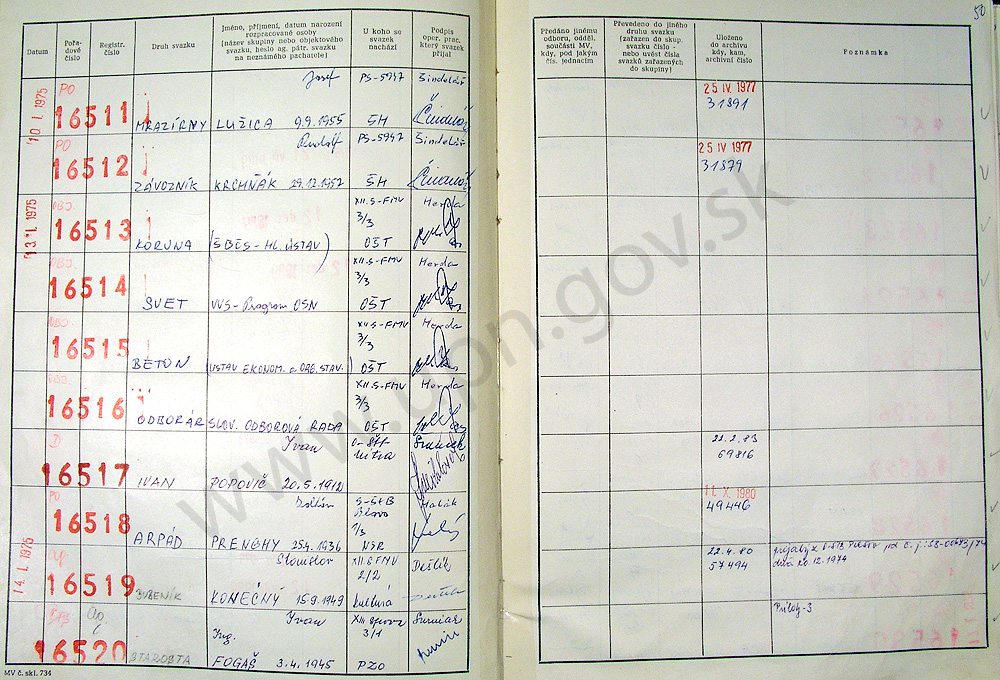 50
Datum
Pořadové číslo
Registr. číslo
Druh svazku
Jméno, příjmení, datum narození rozpracované osoby (název skupiny nebo objektového svazku, heslo ag. pátr. svazku na neznámého pachatele)
U koho se svazek nachází
Podpis oper. prac. který svazek přijal
Předáno jinému odboru, odděl. součásti MV, kdy, pod jakým čís. jednacím
Převedeno do jiného druhu svazku (zařazen do skup. svazku číslo - nebo uvést čísla svazků zařazených do skupiny)
Uloženo do archivu kdy, kam, archivní číslo
Poznámka
10. I. 1975
PO
16511
MRAZÍRNY
Josef
LUŽICA 9.9.1955
PS-5947
ŠH
Šindelář
25 IV. 1977
31891
PO
16512
ZÁVOZNÍK
Rudolf
KRCHŇÁK 29.12.1957
PS-5947
ŠH
Šindelář
25 IV. 1977
31879
13. I. 1975
OBJ.
16513
KORUNA
(ŠBČS-HL. ÚSTAV)
XII.S-FMV
3/3
OŠT
Herda
OBJ.
16514
SVET
VVS-Program OSN
XII.S-FMV
3/3
OŠT
Herda
OBJ.
16515
BETON
(ÚSTAV EKONOM. a ORG. STAV.)
XII.S-FMV
3/3
OŠT
Herda
OBJ.
16516
ODBORÁR
SLOV. ODBOROVÁ RADA
XII.S-FMV
3/3
OŠT
Herda
D
16517
IVAN
Ivan
POPOVIČ 20.5.1912
Nitra
22.2.83
69816
PO
16518
ARPÁD
PRENGHY 25.4.1936
S-ŠtB
1/3
11. X. 1980
49446
14. I. 1975
16519
BUBENÍK
Stanislav
KONEČNÝ 15.9.1949
XII.S FMV
2/2
kultura
22.4.80
57494
dňa 20.12.1974
16520
STAROSTA
Ivan
Ing.
FOGAŠ 3.4.1945
3/1
PZO
Príloh-3
MV č. skl. 734
www.upn.gov.sk